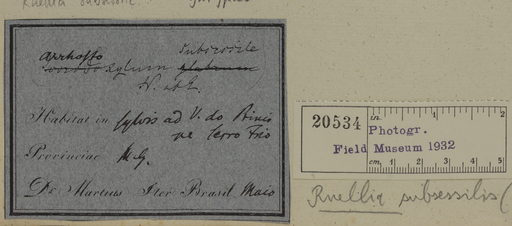 Ruellia subsessilis.
Arrhosto subsessile
xylum glabrum
N. ab E.
Habitat in sylvis ad V. do Principe
Serro Frio
Provinciae M. G.
Dr. Martius Iter Brasil Maio
20534
in. 1 2
Photogr.
Field Museum 1932
cm. 1 2 3 4 5
Ruellia subsessilis (